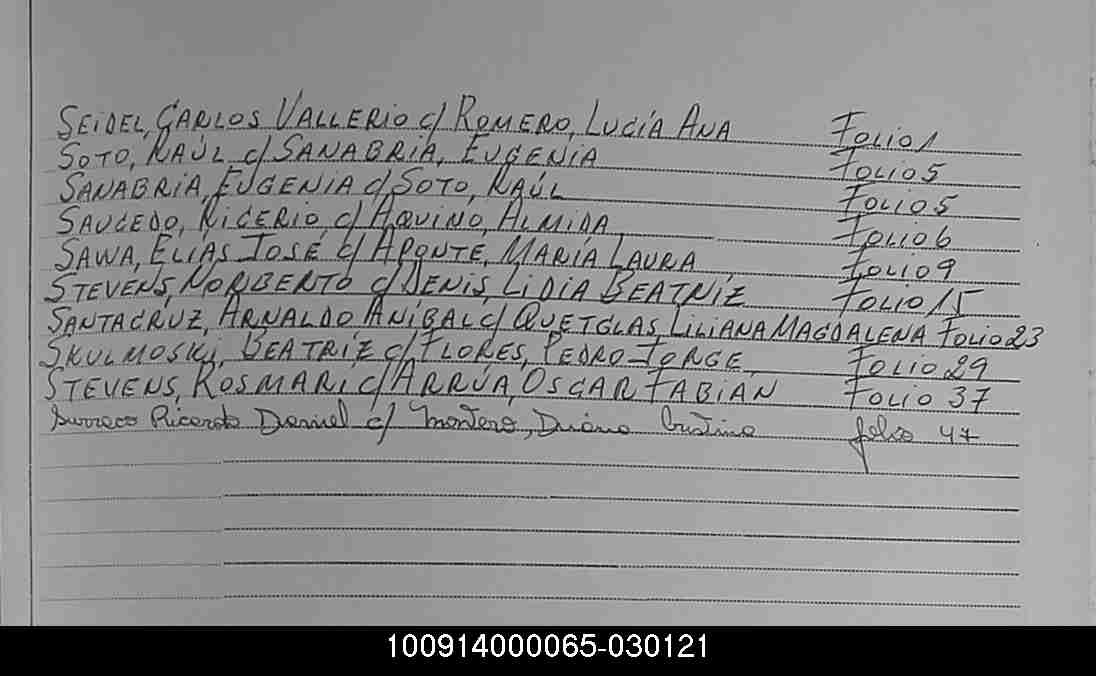 SEIDEL, CARLOS VALLERIO c/ ROMERO, LUCÍA ANA FOLIO 1
SOTO, RAÚL c/ SANABRIA, EUGENIA FOLIO 5
SANABRIA, EUGENIA c/ SOTO, RAÚL FOLIO 5
SAUCEDO, RIGERIO, c/ AQUINO, ALMIDA FOLIO 6
SAWA, ELÍAS JOSÉ c/ APONTE, MARÍA LAURA FOLIO 9
STEVENS, NORBERTO c/ DENIS, LIDIA BEATRIZ FOLIO 15
SANTACRUZ, ARNALDO ANÍBAL c/ QUETGLAS, LILIANA MAGDALENA FOLIO 23
SKULMOSKI, BEATRIZ c/ FLORES, PEDRO JORGE FOLIO 29
STEVENS, ROSMARI c/ ARRÚA, OSCAR FABIÁN FOLIO 37
Surraco Ricardo Daniel c/ Montero, Diana Cristina folio 47
100914000065-030121